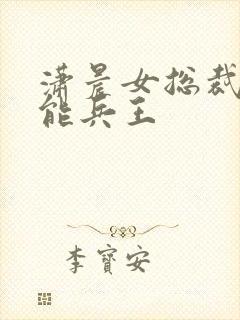 潇晨女总裁
能兵王
李寶安